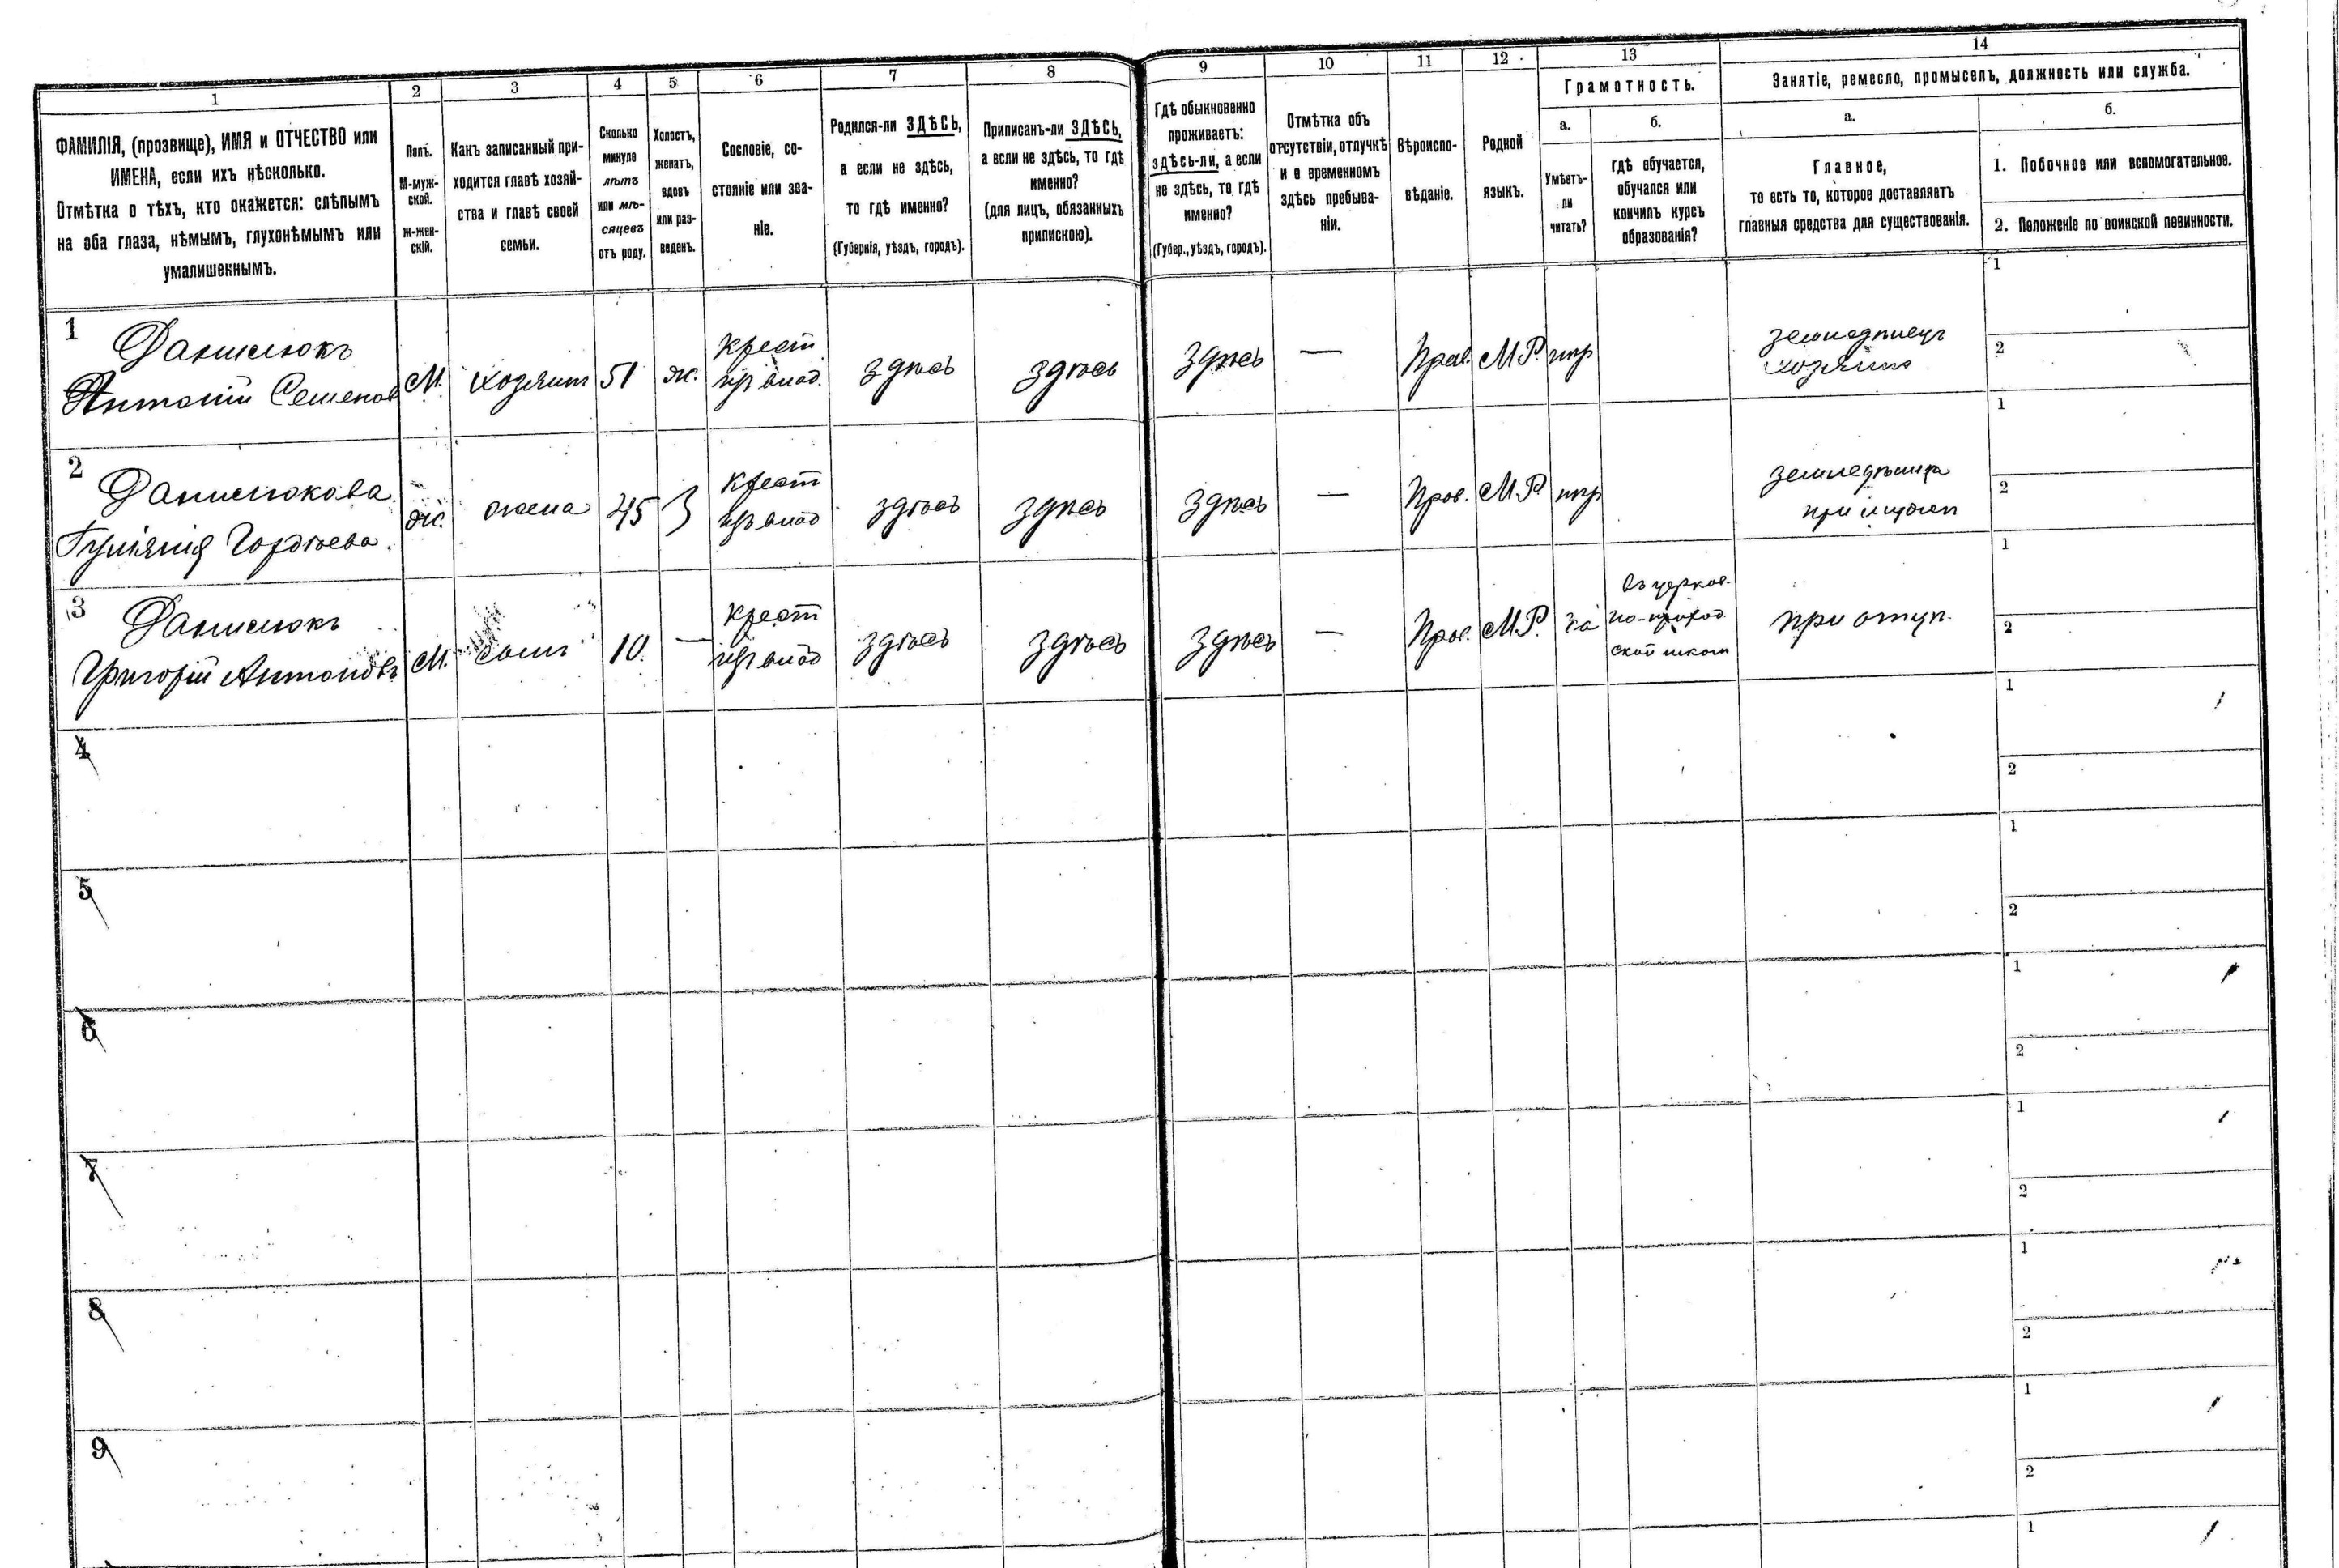 1
2
3
4
5
6
7
8
9
10
11
12
13
14
ФАМИЛІЯ, (прозвище), ИМЯ и ОТЧЕСТВО или
ИМЕНА, если ихъ нѣсколько.
Отмѣтка о тѣхъ, кто окажется: слѣпымъ
на оба глаза, нѣмымъ, глухонѣмымъ или
умалишеннымъ.
Полъ.
М-муж-
ской.
Ж-жен-
скій.
Какъ записанный при-
ходится главѣ хозяй-
ства и главѣ своей
семьи.
Сколько
минуло
лѣтъ
или мѣ-
сяцевъ
отъ роду.
Холостъ,
женатъ,
вдовъ
или раз-
веденъ.
Сословіе, со-
стояніе или зва-
ніе.
Родился-ли ЗДѢСЬ,
а если не здѣсь,
то гдѣ именно?
(Губернія, уѣздъ, городъ).
Приписанъ-ли ЗДѢСЬ,
а если не здѣсь, то гдѣ
именно?
(для лицъ, обязанныхъ
припискою).
Гдѣ обыкновенно
проживаетъ:
здѣсь-ли, а если
не здѣсь, то гдѣ
именно?
(Губер., уѣздъ, городъ).
Отмѣтка объ
отсутствіи, отлучкѣ
и о временномъ
здѣсь пребыва-
ніи.
Вѣроиспо-
вѣданіе.
Родной
языкъ.
Грамотность.
а.
Умѣетъ-
ли
читать?
б.
гдѣ обучается,
обучался или
кончилъ курсъ
образованія?
Занятіе, ремесло, промыселъ, должность или служба.
а.
Главное,
то есть то, которое доставляетъ
главныя средства для существованія.
б.
1. Побочное или вспомогательное.
2. Положеніе по воинской повинности.
1
Данилюкъ
Антоній Семенов
М.
хозяинъ
51
ж.
крест
изъ влад.
здѣсь
здѣсь
здѣсь
—
Прав.
М.Р.
нѣт
земледѣлецъ
хозяинъ
1
2
2
Данилюкова
Гордѣева.
ж.
жена
45
З
крест
изъ влад
здѣсь
здѣсь
здѣсь
—
Прав.
М.Р.
нѣт
при мужѣ
1
2
3
Данилюкъ
Григорій Антоновъ
М.
сынъ
10.
—
крест
изъ влад
здѣсь
здѣсь
здѣсь
—
Прав.
М.Р.
да
въ церков-
но-приход.
ской школ
при отцѣ.
1
2
4
1
2
5
1
2
6
1
2
7
1
2
8
1
2
9
1
2
1